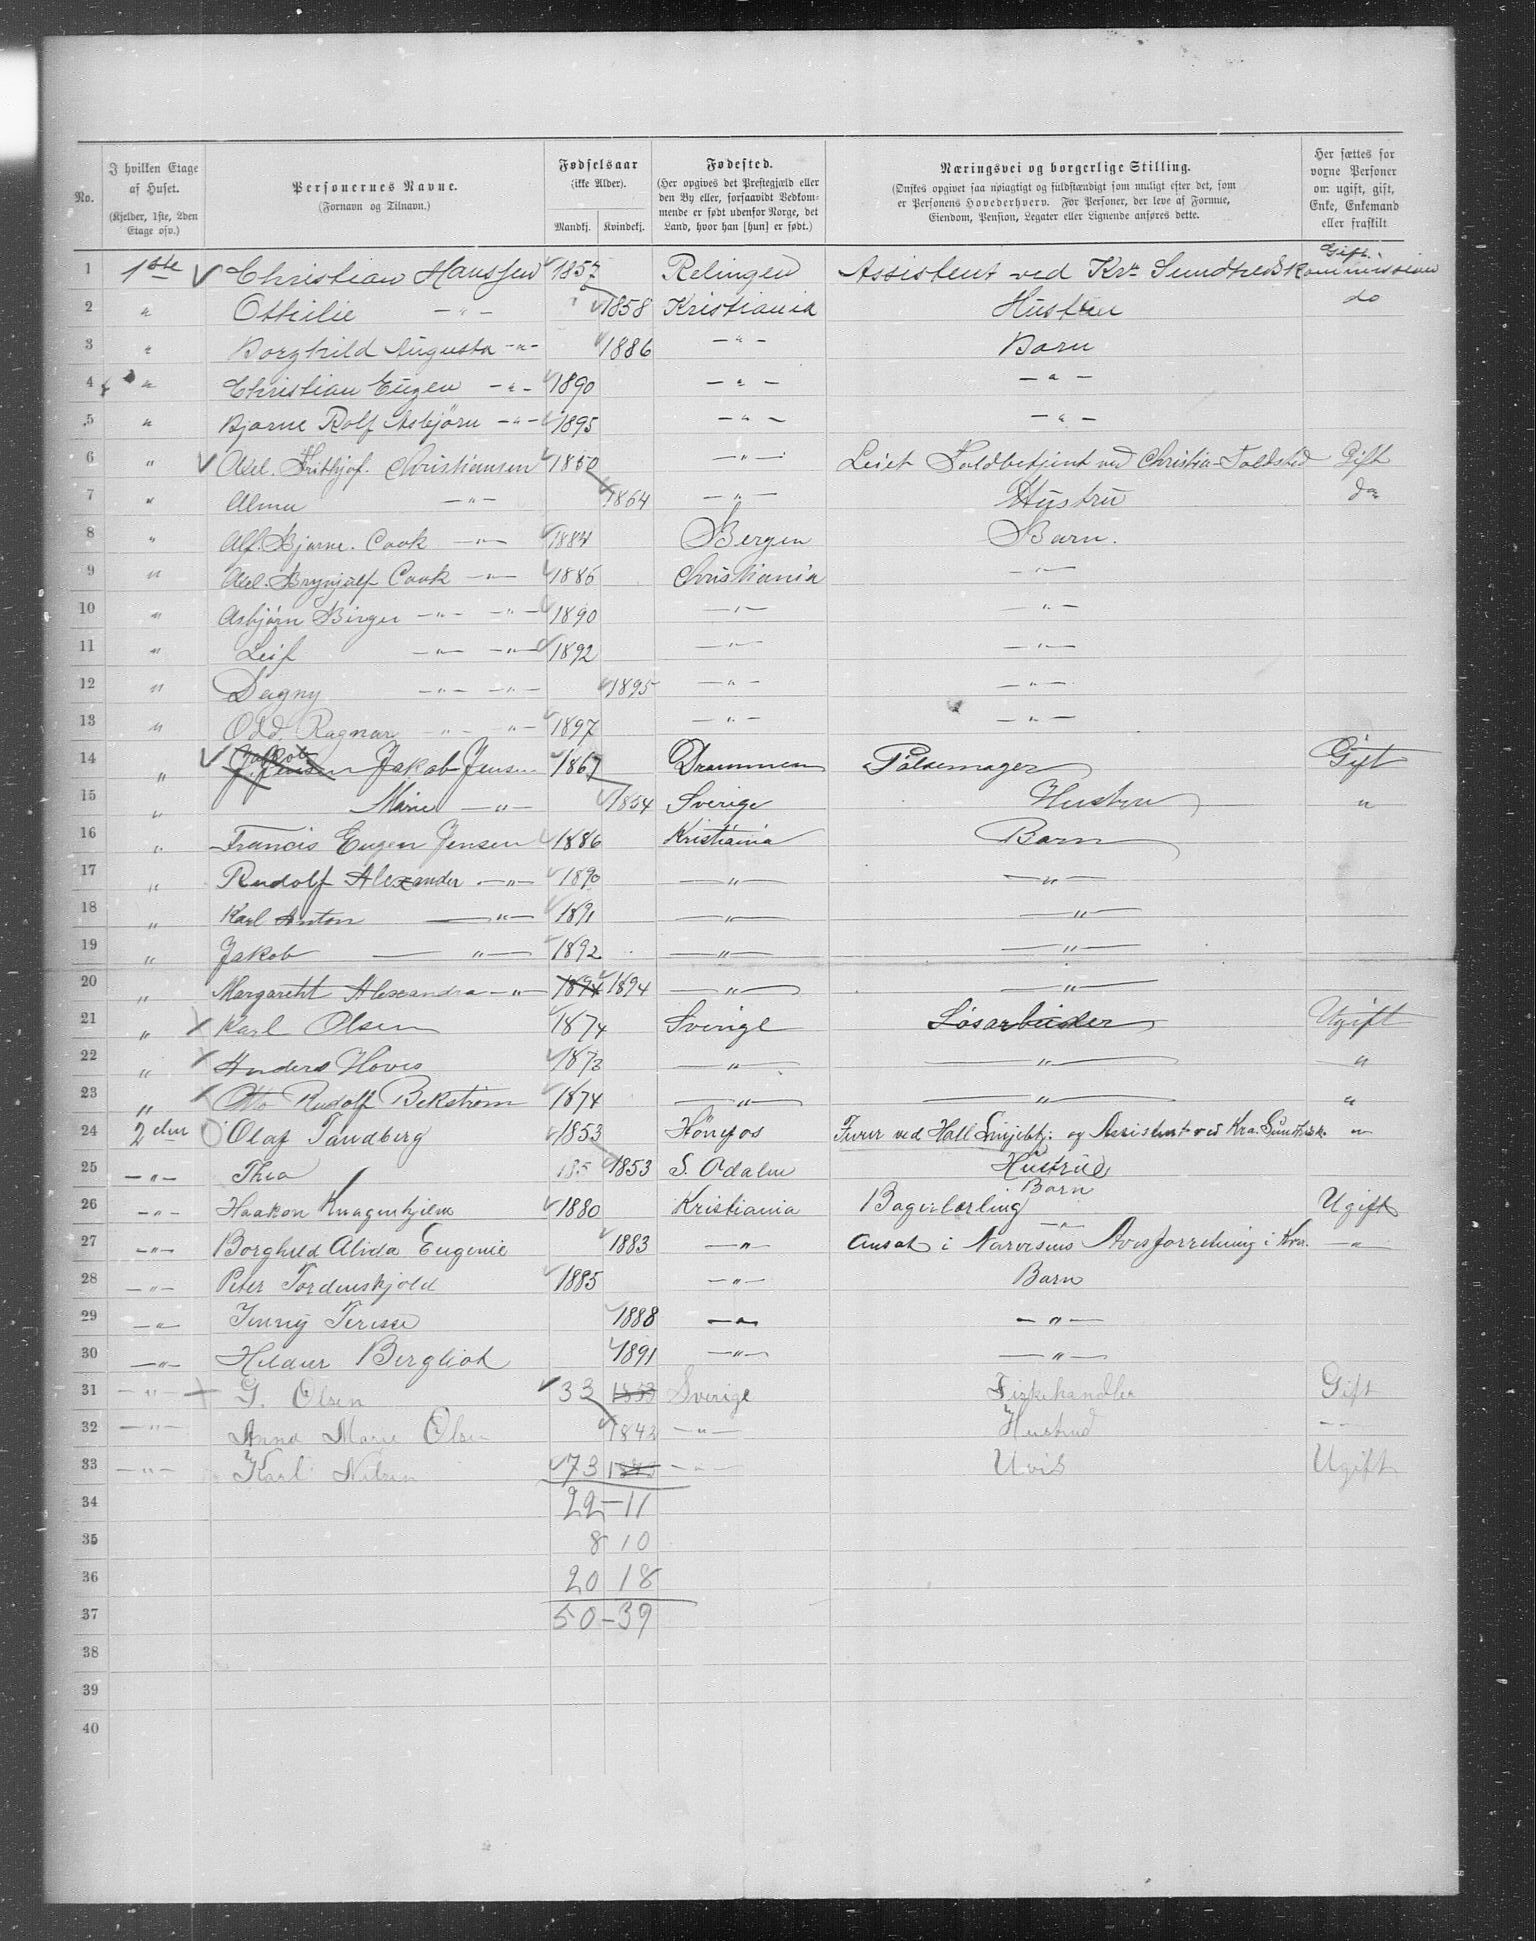 No.
I hvilken Etage af Huset. (Kjelder, 1ste, 2den Etage osv.)
Personernes Navne. (Fornavn og Tilnavn.)
Fødselsaar (ikke Alder). Mandkj. Kvindekj.
Fødested. (Her opgives det Prestegjæld eller den By eller, forsaavidt Vedkommende er født udenfor Norge, det Land, hvor han [hun] er født.)
Næringsvei og borgerlige Stilling. (Ønskes opgivet saa nøiagtigt og fuldstændigt som muligt efter det, som er Personens Hovederhverv. For Personer, der leve af Formue, Eiendom, Pension, Legater eller Lignende anføres dette.)
Her sættes for voxne Personer om: ugift, gift, Enke, Enkemand eller fraskilt
1 1ste Christian Hanssen 1857 Relingen Assistent ved Kra Sundhedskommissionen Gift
2 " Othilie —"— 1858 Kristiania Hustru do
3 " Borghild Augusta —"— 1886 —"— Barn
4 " Christian Eugen —"— 1890 —"— —"—
5 " Bjarne Rolf Asbjörn —"— 1895 —"— —"—
6 " Axel. Frithjof. Christiansen 1850 —"— Leiet Toldbetjent ved Christia-Toldsted Gift
7 " Alma —"— 1864 —"— Hustru do
8 " Alf. Bjarne. Cook —"— 1884 Bergen Barn.
9 " Axel. Brynjulf Cook —"— 1886 Christiania —"—
10 " Asbjørn Birger —"— —"— 1890 —"— —"—
11 " Leif —"— —"— 1892 —"— —"—
12 " Dagny —"— —"— 1895 —"— —"—
13 " Odd. Ragnar —"— —"— 1897 —"— —"—
14 " Jakob Jensen 1867 Drammen Pølsemager Gift
15 " Marie —"— 1854 Sverige Hustru "
16 " Francis Eugen Jensen 1886 Kristiania Barn
17 " Rudolf Alexander —"— 1890 —"— —"—
18 " Karl Anton —"— 1891 —"— —"—
19 " Jakob —"— 1892 —"— —"—
20 " Margareht Alexandra —"— 1894 1894 —"— —"—
21 " Karl Olsen 1874 Sverige Løsarbeider Ugift
22 " Anders Hoves 1873 —"— —"— "
23 " Otto Rudolf Bekström 1874 —"— —"— "
24 2den Olaf Tandberg 1853 Hönefos Furer ved Hall Linjebtj: og Assistent ved Kra. Sundhdsk. "
25 —"— Thea 185 1853 S. Odalen Hustrue
26 —"— Haakon Knagenhjelm 1880 Kristiania Barn Bagerlærling Ugift
27 —"— Borghild Alida Eugenie 1883 —"— —"— Ansat i Narvesens Avisforretning i Kra. —"—
28 —"— Peter Tordenskjold 1885 —"— Barn
29 —"— Jenny Terese 1888 —"— —"—
30 —"— Hildur Bergliot 1891 —"— —"—
31 —"— G. Olsen 33 1833 Sverige Fiskehandler Gift
32 —"— Anna Marie Olsen 1842 —"— Hustrud —"—
33 —"— Karl Nilsen 73 —"— Uvis Ugift
34 22—11
35 8 10
36 20 18
37 50—39
38
39
40